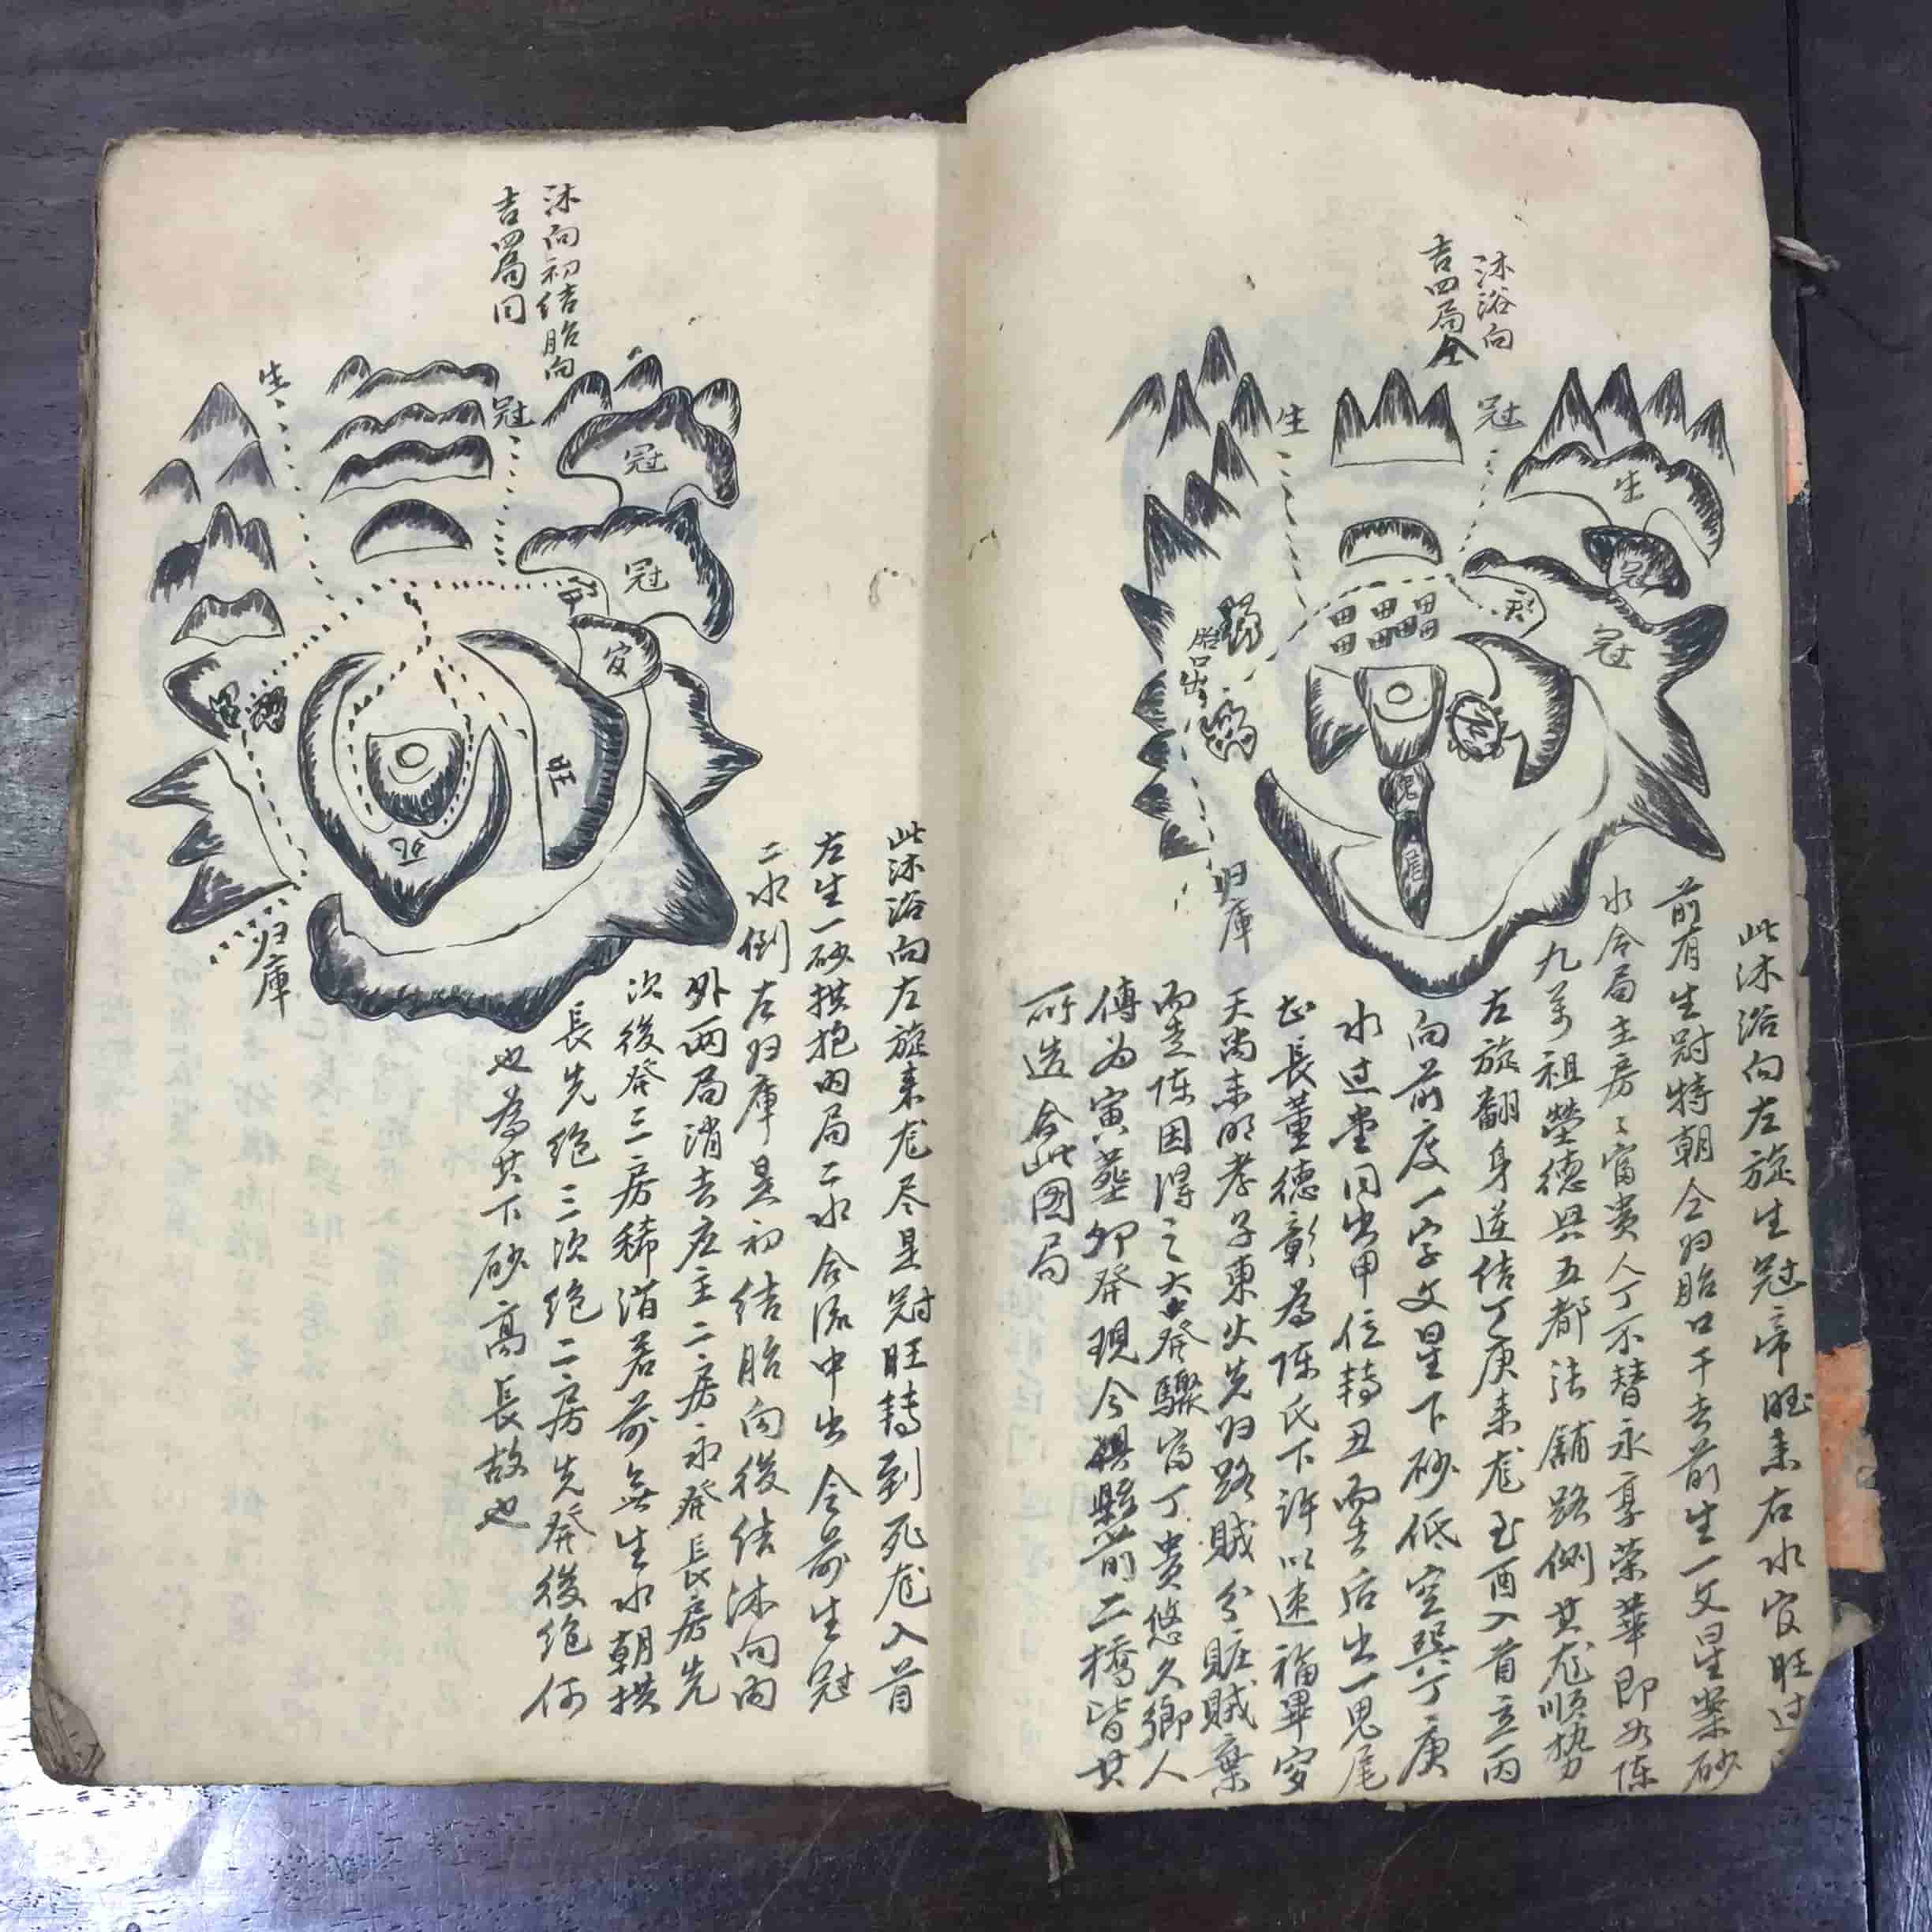 沐浴向
吉四局仝
生
冠
生
官
冠
胎口出
鬼
尾
归庫
此沐浴向左旋生冠帝旺来右水官旺过
前有生冠特朝仝归胎口千去前生一文星案砂
水合局主房〻富贵人丁不替永享荣華即如陈
九萬祖塋德興五都法舖路側其龙順势
左旋翻身逆结丁庚来龙至酉入首立丙
向前度一字文星下砂低空巽丁庚
水过堂同出甲位轉丑而去后出一鬼尾
長董德彰為陈氏下許以速福畢穿
天尚未明孝子東火先归路賊分賍賊棄
而走陈因得之大發驟富丁贵悠久鄉人
傳为寅塟卯發現今縣前二橋皆其
所造合此圖局
沐向初结胎向
吉四局同
生
冠
冠
冠
官
旺
死
归庫
此沐浴向左旋来龙尽是冠旺轉到死龙入首
左生一砂拱抱内局二水合流中出令前生冠
二水倒左归庫是初结胎向後结沐向内
外兩局消去左主二房永發長房先
次後發三房稀消若前無生水朝拱
長先绝三次绝二房先發後绝何
也為其下砂高長故也